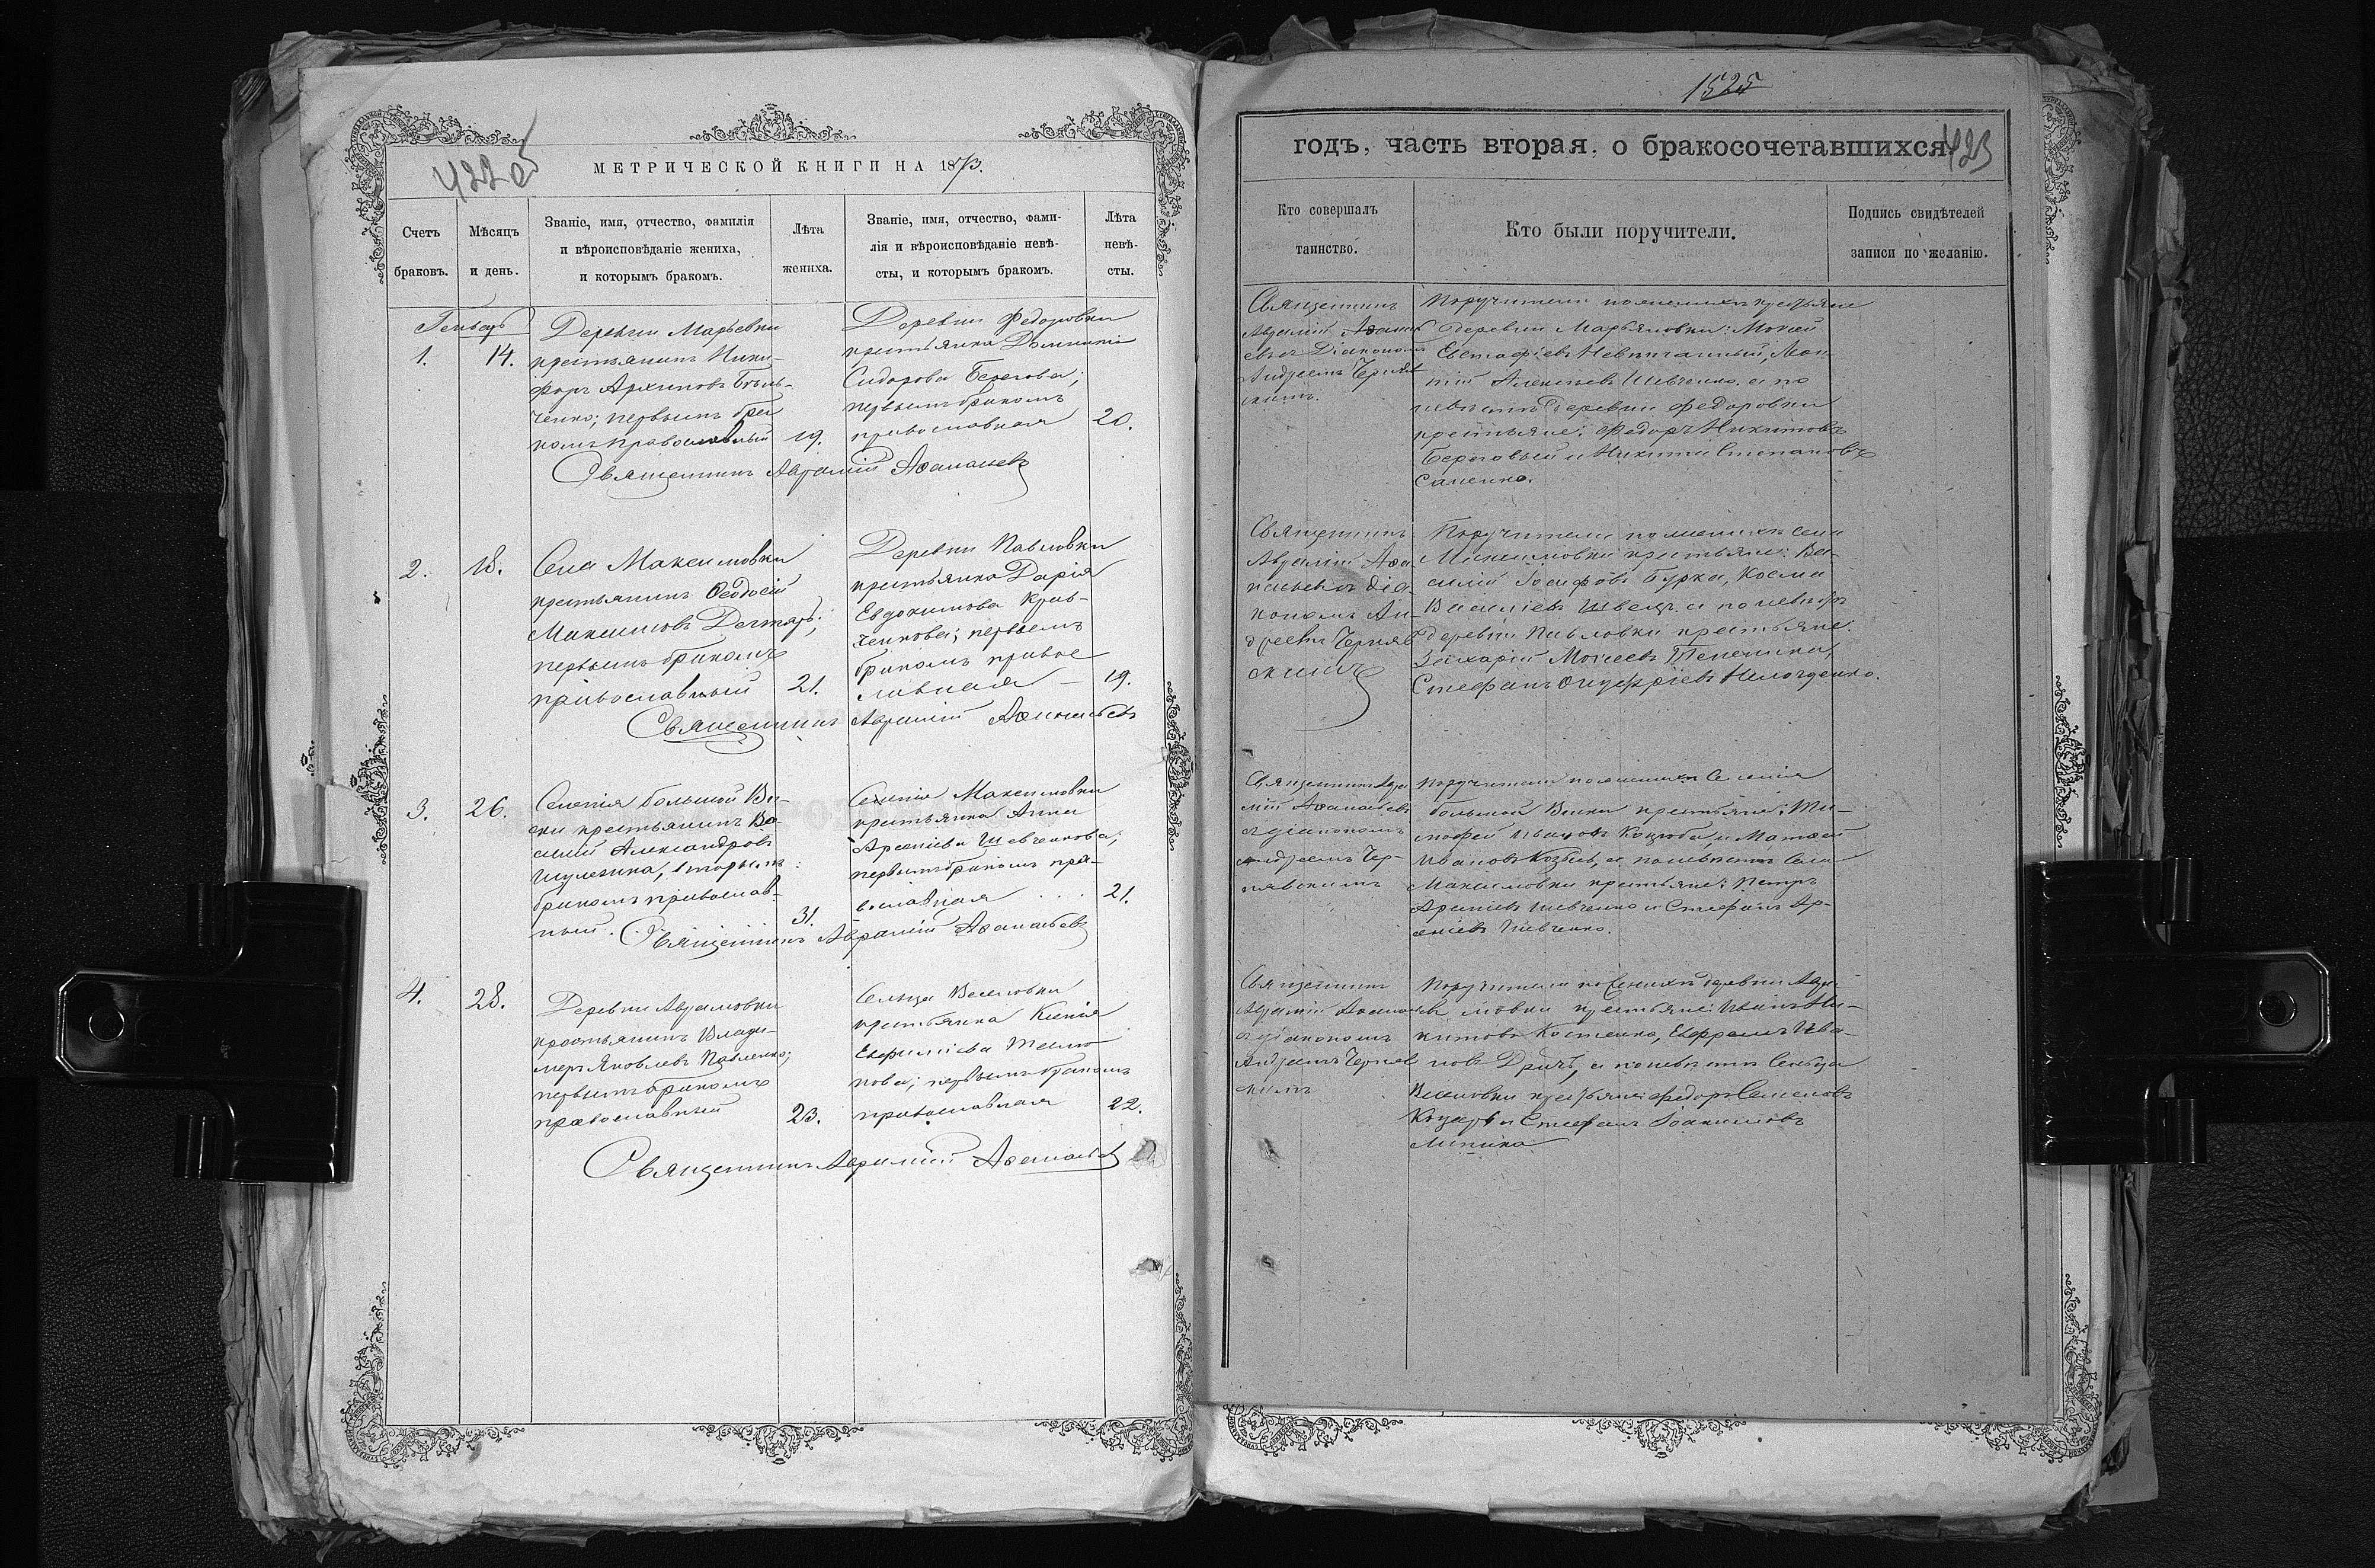 422 об
МЕТРИЧЕСКОЙ КНИГИ НА 1873.
Счетъ браковъ.
Мѣсяцъ и день.
Званіе, имя, отчество, фамилія
и вѣроисповѣданіе жениха,
и которымъ бракомъ.
Лѣта
жениха.
Званіе, имя, отчество, фами-
лія и вѣроисповѣданіе невѣ-
сты, и которымъ бракомъ.
Лѣта
невѣ-
сты.
Генварь
1.
14.
Деревни Марьевки
крестьянинъ Ники-
форъ Архиповъ Бѣль-
ченко; первымъ бра
комъ православный
19.
Деревни Федоровки
крестьянка Домникія
Сидорова Берегова;
первымъ бракомъ
православная
20.
Священникъ Авраамій Аѳанасьевъ
2.
18.
Села Максимовки
крестьянинъ Ѳеодосій
Максимовъ Дегтярь;
первымъ бракомъ
православный
21.
Деревни Павловки
крестьянка Дарія
Евдокимова Крив-
ченкова; первымъ
бракомъ право
славная
19.
Священникъ Авраамій Аѳанасьевъ
3.
26.
Селенія Большой Ви-
ски крестьянинъ Ва-
силий Александровъ
Шулежка, вторымъ
бракомъ православ-
ный.
31.
Селенія Максимовки
крестьянка Анна
Арсеніева Шевченкова;
первымъ бракомъ пра-
вославная
21.
Священникъ Авраамій Аѳанасьевъ
4.
28.
Деревни Авдамовки
крестьянинъ Влади-
миръ Яковлевъ Павленко;
первымъ бракомъ
православный
23.
Сельца Веселовки
крестьянка Ксенія
Евфиміева
первымъ бракомъ
православная
22.
Священникъ Авраамій Аѳанасьевъ
1525
годъ, часть вторая, о бракосочетавшихся
423
Кто совершалъ
таинство.
Кто были поручители.
Подпись свидѣтелей
записи по желанію.
Священникъ
Авраамій Аѳанась
евъ съ Діакономъ
Андреемъ Черняв
скимъ.
Поручители по женихѣ крестьяне
деревни Марьяновки: Моисей
Евстафіевъ
Алексѣевъ Шевченко. а по
невѣстѣ деревни Федоровки
крестьяне: Федоръ Никитовъ
Береговый и Никита Степановъ
Саненко.
Священникъ
Авраамій Аѳа
насьевъ съ діа
кономъ Ан-
дреемъ Черняв
скимъ
Поручители по женихѣ села
Максимовки крестьяне: Ва-
силій Іосифовъ Бурка, Косма
Василіевъ Швецъ. а по невѣстѣ
деревни Павловки крестьяне:
Захарій Моисеевъ
Стефанъ Онуфріевъ
Священникъ Авра
мій Аѳанасьевъ
съ діакономъ
Андреемъ Чер-
нявскимъ
Поручители по женихѣ Селенія
большой Виски крестьяне: Ти-
мофей Ивановъ Коцюба, и Матѳей
Ивановъ а по невѣстѣ Села
Максимовки крестьяне: Петръ
Арсеніевъ Шевченко и Стефанъ Ар-
сеніевъ Шевченко.
Священникъ
Авраамій Аѳанасьевъ
съ діакономъ
Андреемъ Черняв
скимъ
Поручители по женихѣ деревни Авда
мовки крестьяне: Иванъ Ни-
китовъ Костенко, Евфремъ Ива-
новъ а по невѣстѣ Сельца
Веселовки крестьяне: Федоръ Семеновъ
Козарь и Стефанъ Іоакимовъ